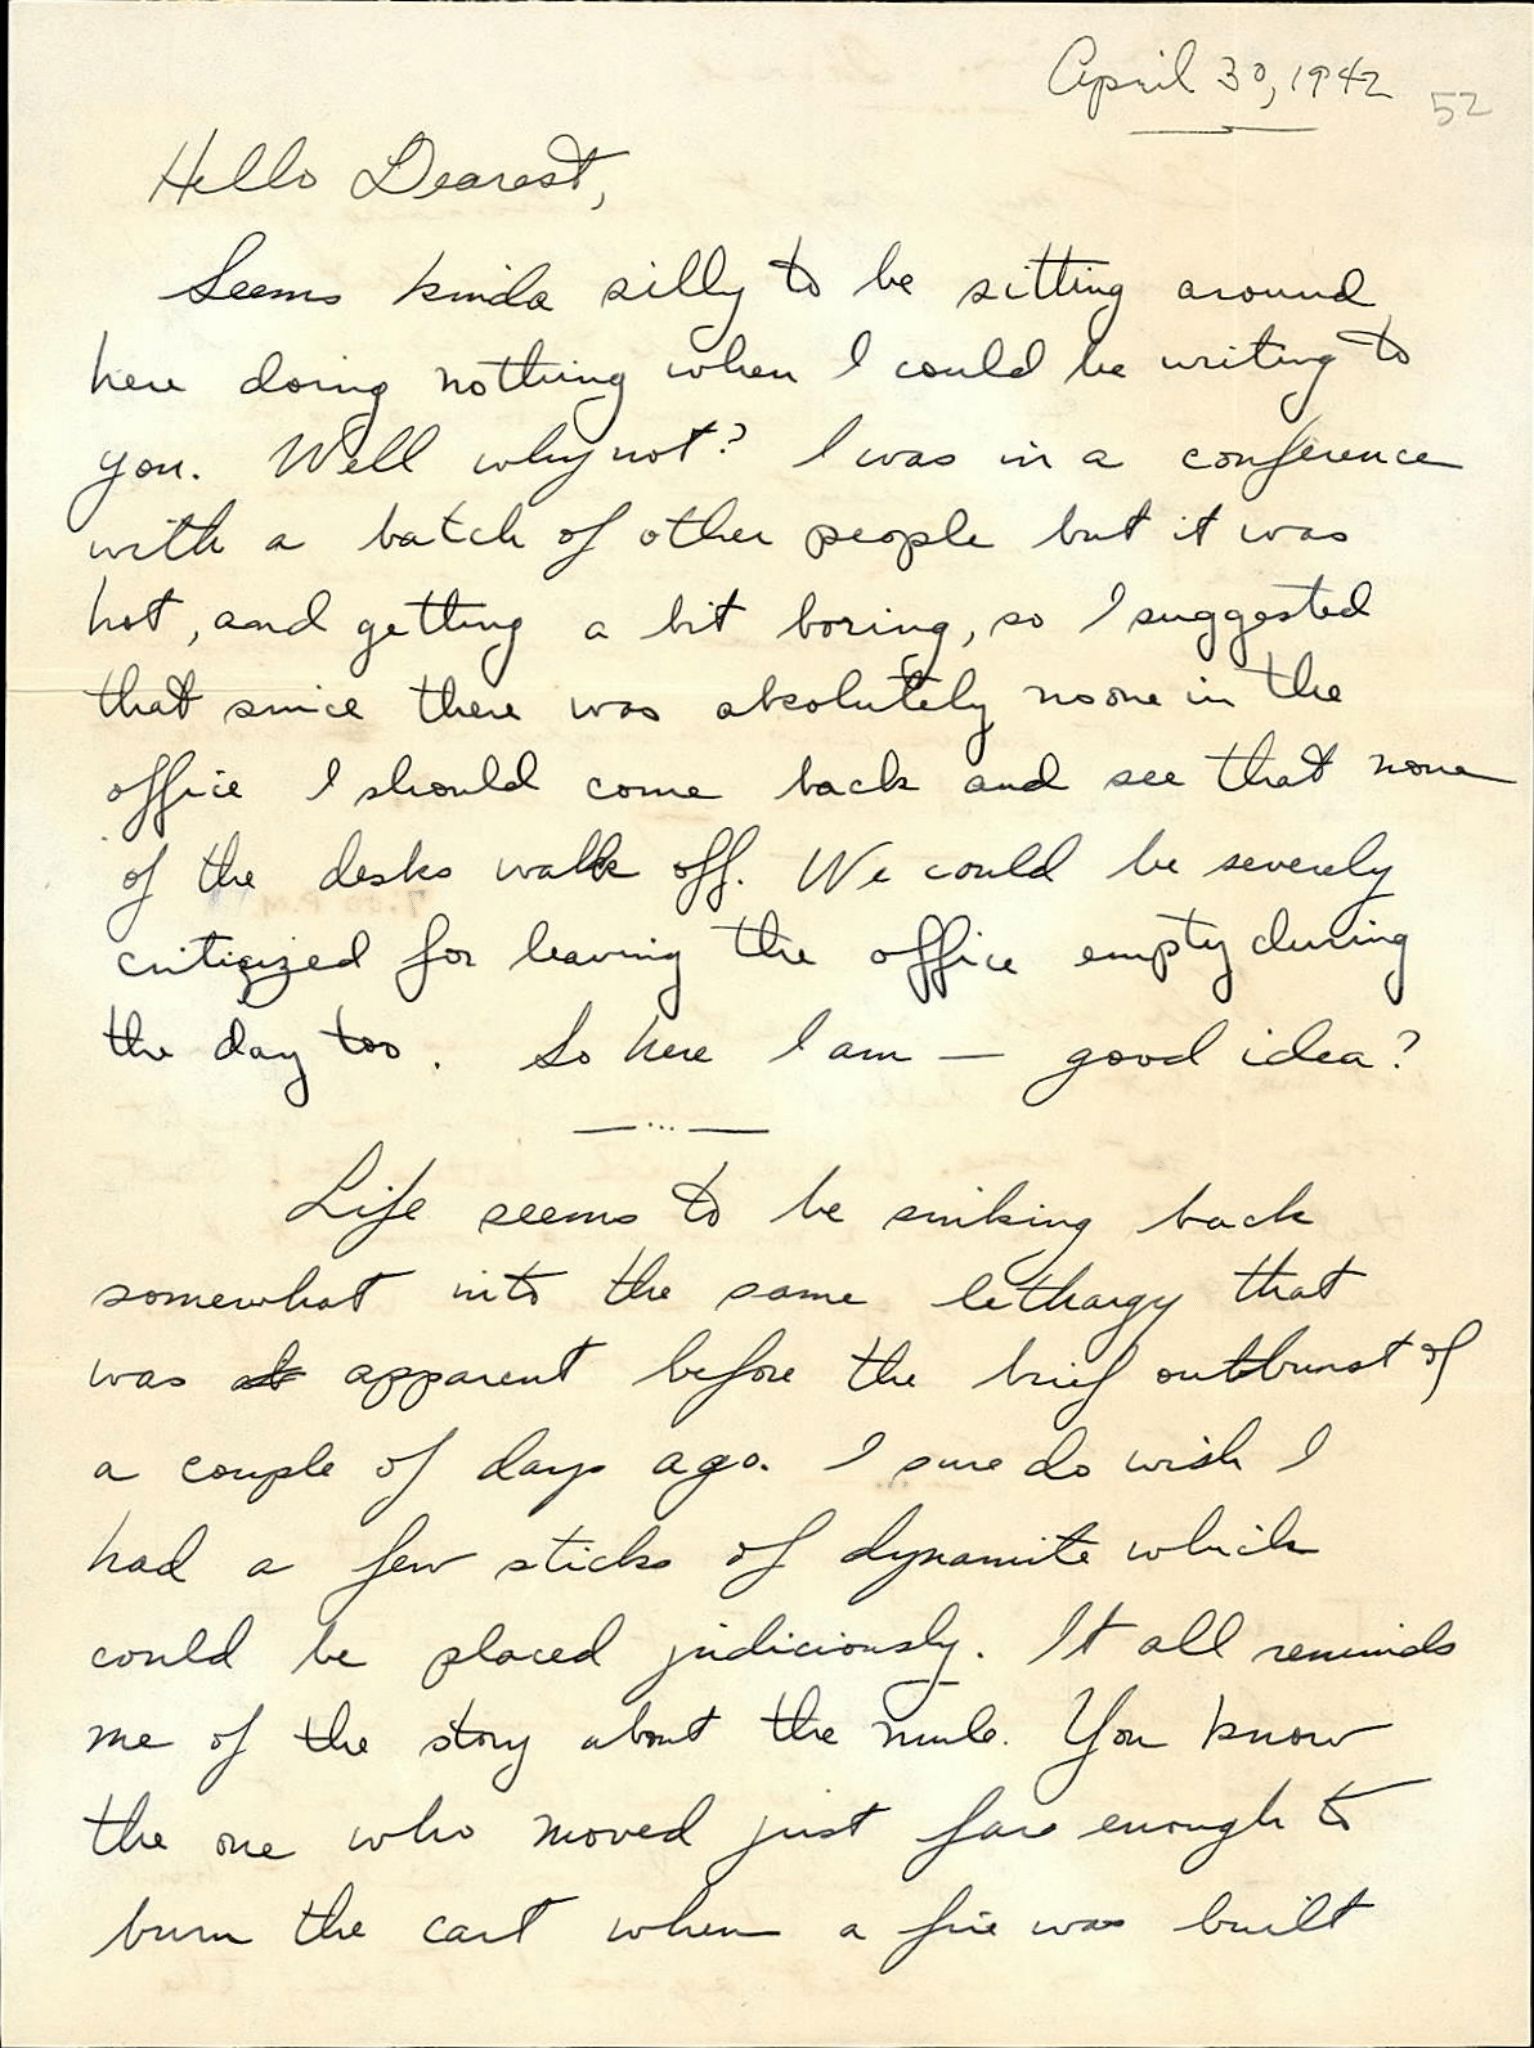 April 30, 1942 52
Hello Dearest,
Seems kinda silly to be sitting around
here doing nothing when I could be writing to
you. Well why not? I was in a conference
with a batch of other people but it was
hot, and getting a bit boring, so I suggested
that since there was absolutely noone in the
office I should come back and see that none
of the desks walk off. We could be severely
critisized for leaving the office empty during
the day too. So here I am — good idea?
—...—
Life seems to be sinking back
somewhat into the same lethargy that
was apparent before the brief outburst of
a couple of days ago. I sure do wish I
had a few sticks of dynamite which
could be placed judiciously. It all reminds
me of the story about the mule. You know
the one who moved just far enough to
burn the cart when a fire was built